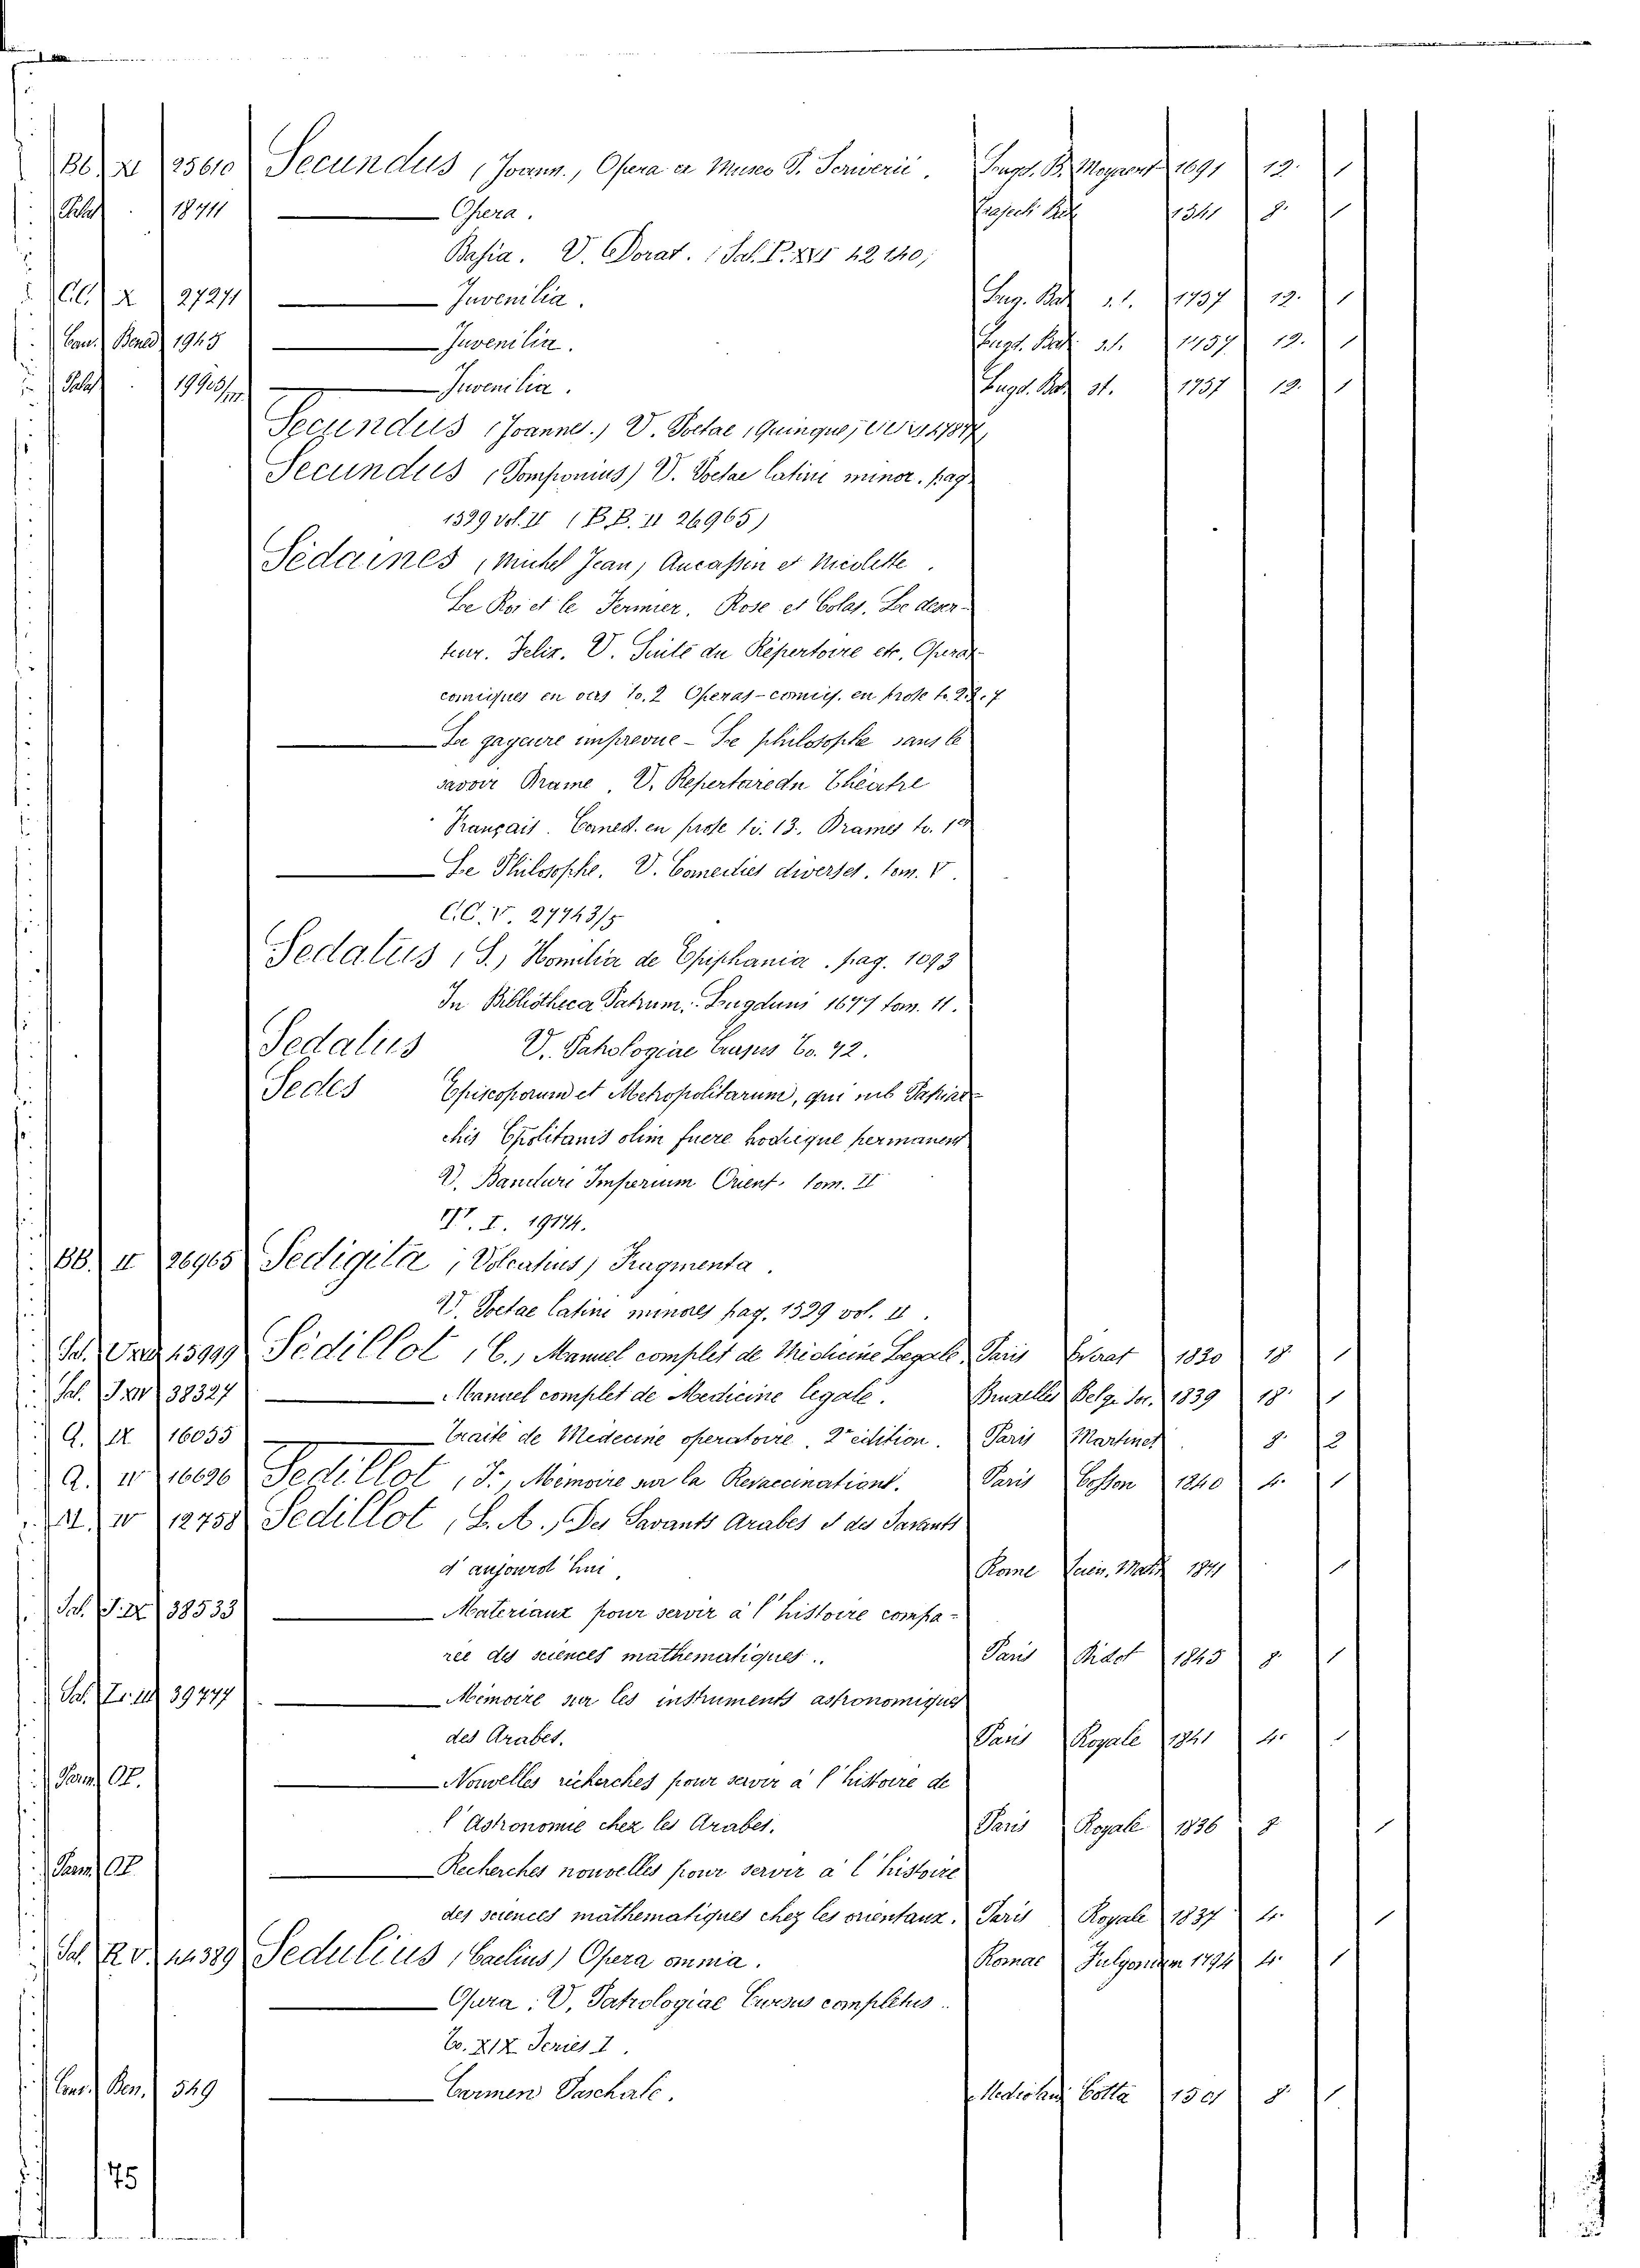 BB. XI 25610 Secundus (Joann., Opera ex Museo P. Scriverii. Lugd. B. Moyaert 1691 12. 1
Palat. 18711 Opera. Traject. Bat. 1541 8. 1
Basia. V. Dorat. (Sal. P. XVI 42140)
CC. X 27271 Juvenilia. Lug. Bat. s.t. 1757 12. 1
Can. Bened. 1945 Juvenilia. Lugd. Bat. s.t. 1757 12. 1
Palat. 19903/III Juvenilia. Lugd. Bat. st. 1757 12. 1
Secundus (Joannes.) V. Poetae (Quinque)
Secundus (Pomponius) V. Poetae latini minor. pag.
1529 vol. II (BB. II 26965)
Sédaines, Michel Jean, Aucassin et Nicolette.
Le Roi et le Fermier. Rose et Colas. Le déser-
teur. Felix. V. Suite du Répertoire etc. Operas
comiques en vers to. 2 Operas-comiq. en prose to. 2.2.7
Le gageure imprevue - Le philosophe sans le
savoir Drame. V. Repertoire du Théâtre
Français. Comed. en prose to. 13. Drames to. 1er
Le Philosophe. V. Comedies diverses. tom. V.
C.C. V. 27743/5
Sedatus (S.) Homilia de Epiphania. pag. 1093
In Bibliotheca Patrum. Lugduni 1677 tom. 11.
Sedatus V. Patrologiae Cursus to. 72.
Sedes Episcoporum et Metropolitarum, qui sub Patriar-
chis Cpolitanis olim fuere hodieque permanent
V. Banduri Imperium Orient. tom. II
I. 19174.
BB. II 26965 Sedigita (Volcatius) Fragmenta.
V. Poetae latini minores pag. 1529 vol. II.
Sal. 15999 Sédillot (C., Manuel complet de Médicine Legale. Paris Everat 1830 18 1
Sal. I XIV 38327 Manuel complet de Medicine legale. Bruxelles Belge Soc. 1839 18. 1
A. IX 16055 Traité de Médecine operatoire. 2e edition. Paris Martinet. 8. 2
A. II 16696 Sedillot (J., Mémoire sur la Revaccinations. Paris Cosson 1840 4. 1
IV 12758 Sedillot (L. A., Des Savants Arabes et des Savants
d'aujourd hui. Rome Scien. Math. 1841 1
Sal. J. IX 38533 Materiaux pour servir à l'histoire compa-
rée des sciences mathematiques. Paris Didot 1845 8. 1
Sal. Tr. III 39777 Mémoire sur les instruments astronomiques
des Arabes. Paris Royale 1841 4. 1
OP. Nouvelles recherches pour servir à l'histoire de
l'Astronomie chez les Arabes. Paris Royale 1836 8 1
OP Recherches nouvelles pour servir à l'histoire
des sciences mathematiques chez les orientaux. Paris Royale 1837 4. 1
Sal. R V. 44389 Sedulius (Caelius) Opera omnia. Romae Fulgonium 1794 4. 1
Opera. V. Patrologiae Cursus completus.
To. XIX Series I.
Cons. Ben. 549 Carmen Paschale. Mediolan. Cotta 1501 8. 1
75